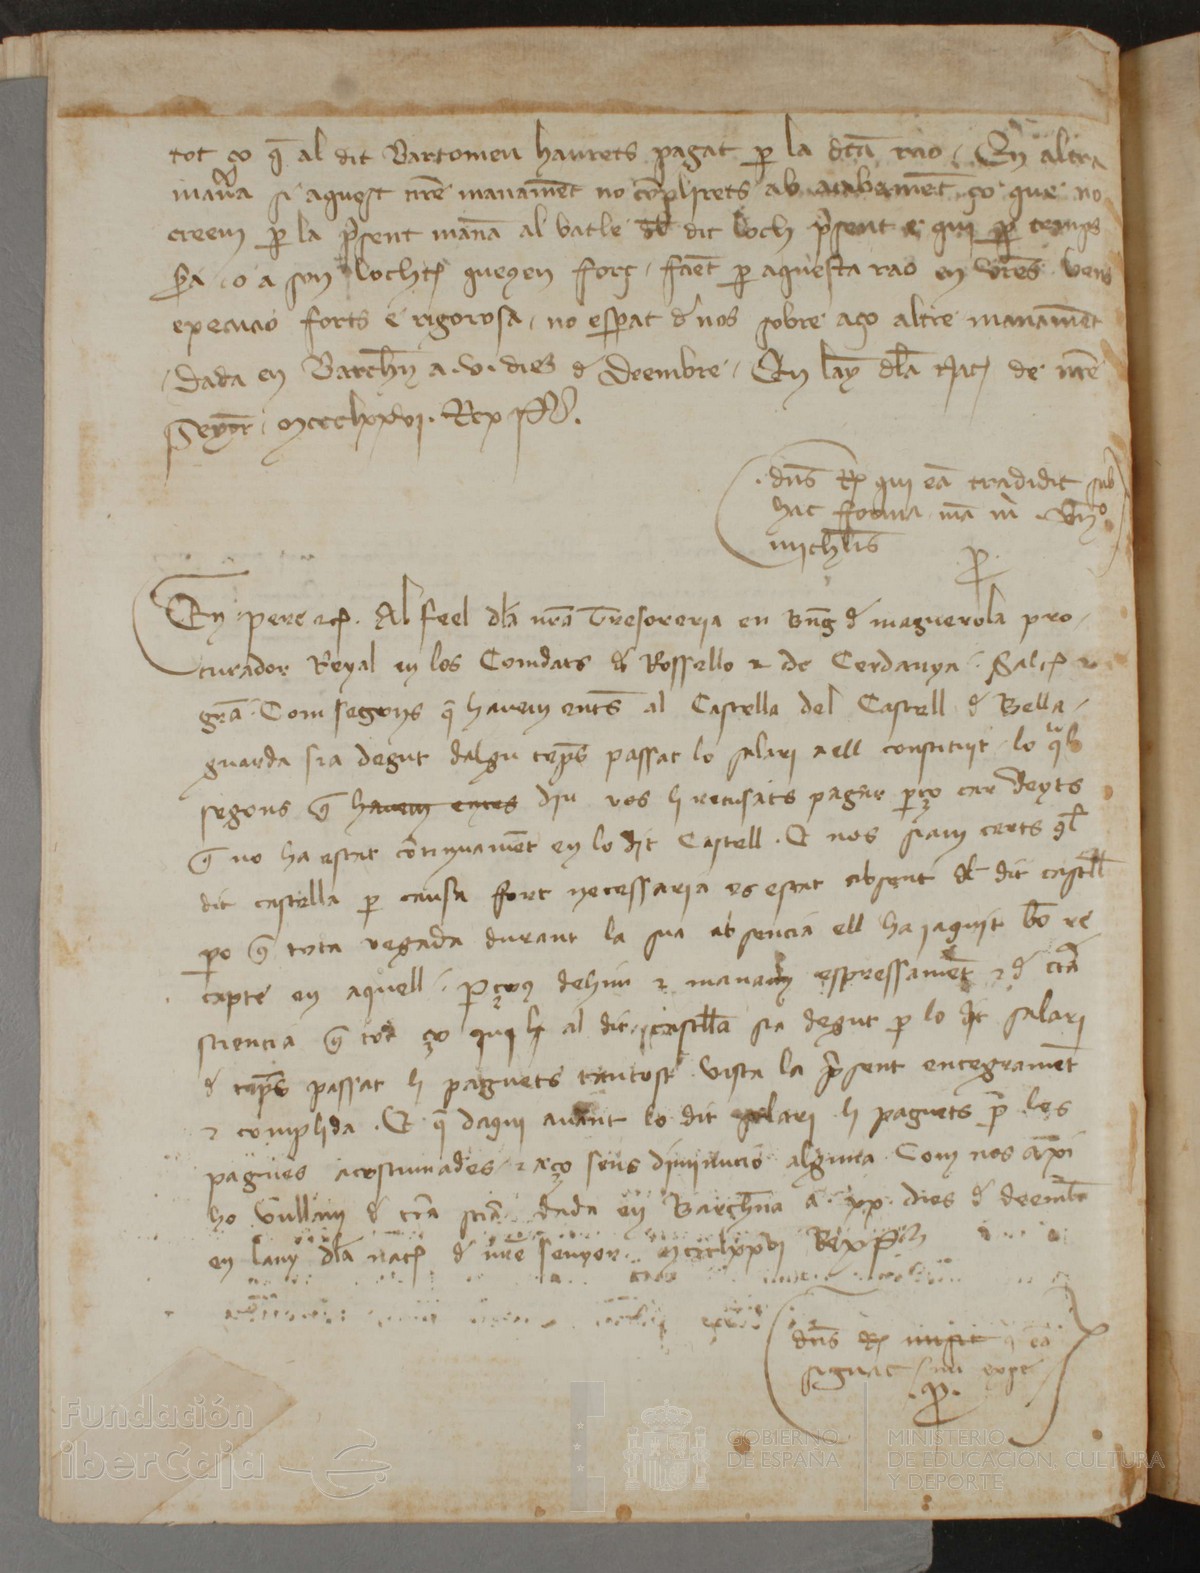 tot ço q̃ al dit Bartomeu haurets pagat ꝑ la dc̃a rao / En altra
mañ̃a si aquest nr̃e manamẽt no cõplirets ab acabamẽt ço que no
creem ꝑ la p̃sent manã al batle dl̃ dit loch p̃sent e qui ꝑ temps
o a son lochtꝭ forç faẽt ꝑ aquesta rao en vr̃es bens
execucio forts e rigorosa / no esꝑat d̃ nos sobre aço altre manamẽt
Dada en Barchñ a .v. dies d̃ Deembre / En lãy dl̃a natꝭ de nr̃e
Seyor̃ mccclxxvi. Rex P
dñs Rꝭ qui eã tradidit sub
hac forma
michl̃is
P.
En Pere ⁊cꝭ. Al feel dl̃a nr̃a Tresoreria en Bñg d̃ maguerola pro
curador Reyal en los Comdats d̃ Rossello ⁊ de Cerdanya. Salꝭ ⁊
grã. Com segons q̃ havem entẽs al Castella del Castell d̃ Bella
guarda sia degut dalgu tẽps passat lo salari a ell constituit lo ql̃
segons q̃ havem entes diu vos li recusats pagar ꝑço car deyts
q̃ no ha estat cõtinuamẽt en lo dit Castell. E nos siam certs ql̃
dit castella ꝑ causa fort necessaria es estat absent dl̃ dit castell̃
ꝑo q̃ tota vegada durant la sua absencia ell ha jaquit bõ re
capte en aquell. ꝑço dehim ⁊ manam espressamẽt ⁊ d̃ ctã
sciencia q̃ tot ço qui al dit castell̃a sia degut ꝑ lo dit salari
d̃ tẽps passat li paguets tantost vista la p̃sent entegramẽt
⁊ complida. E q̃ daqui auant lo dit salari li paguets ꝑ les
pagues acostumades ⁊ aço sens diminucio alguna. Com nos axi
ho vullam d̃ ctã sciã. Dada en Barchña a xx dies d̃ deembr̃
en lany dl̃a natꝭ d̃ nr̃e senyor mccclxxvi Rex P
dñs Rꝭ misit eã
signat
P.
Fundación
iberCaja
GOBIERNO
DE ESPAÑA
MINISTERIO
DE EDUCACIÓN, CULTURA
Y DEPORTE